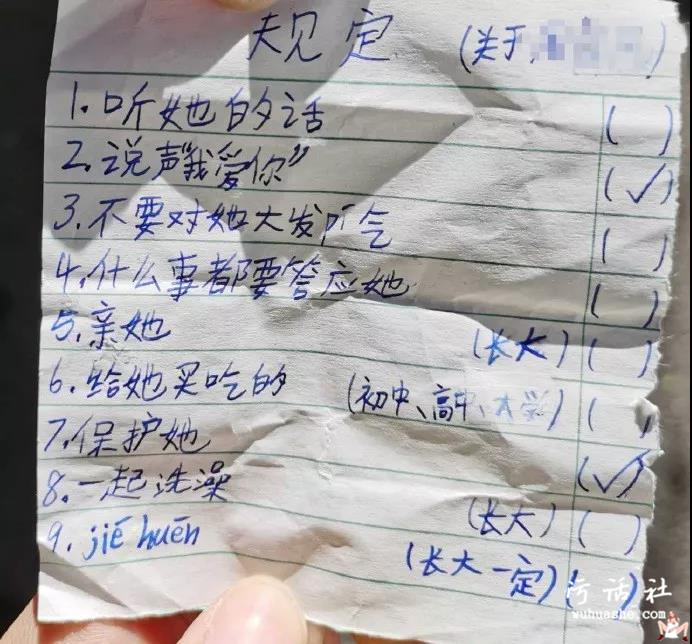 规定 (关于
1. 听她的话 ( )
2. 说声"我爱你" (✓)
3. 不要对她大发脾气 ( )
4. 什么事都要答应她 ( )
5. 亲她 (长大) ( )
6. 给她买吃的 (初中、高中、大学) ( )
7. 保护她 (✓)
8. 一起洗澡 (长大) ( )
9. jiē huēn (长大一定) ( )
污话社
wuhuashe.com